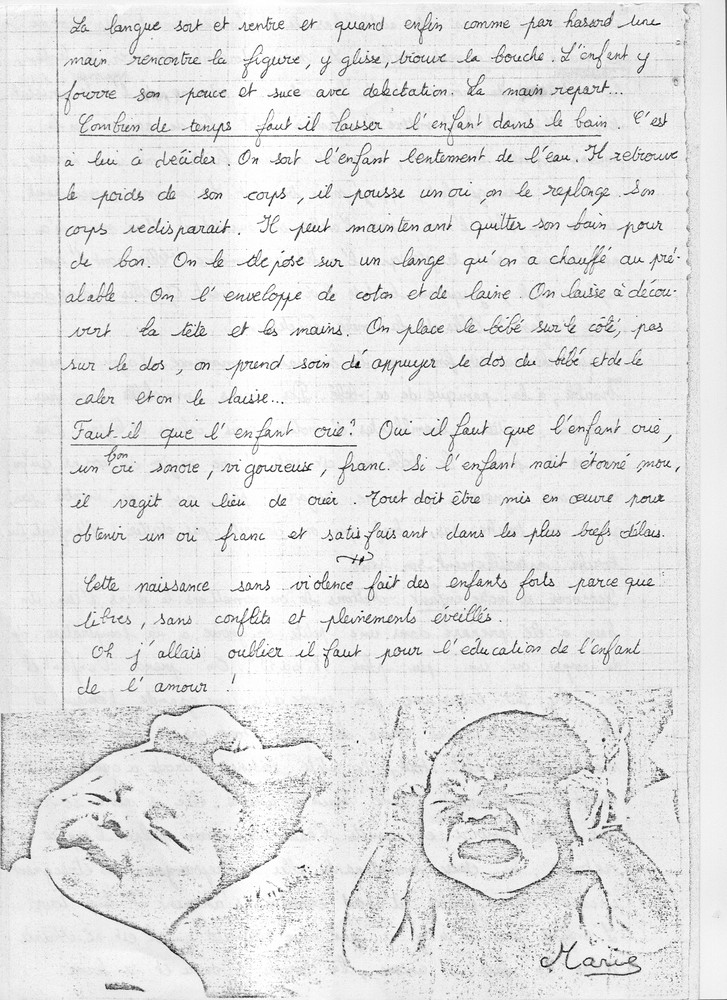 La langue sort et rentre et quand enfin comme par hasard une
main rencontre la figure, y glisse, trouve la bouche. L'enfant y
fourre son pouce et suce avec delectation. La main repart...
Combien de temps faut il laisser l'enfant dans le bain. C'est
à lui à décider. On sort l'enfant lentement de l'eau. Il retrouve
le poids de son corps, il pousse un cri, on le replonge. Son
corps redisparait. Il peut maintenant quitter son bain pour
de bon. On le dépose sur un lange qu'on a chauffé au pré-
alable. On l'enveloppe de coton et de laine. On laisse à décou-
vert la tête et les mains. On place le bébé sur le côté, pas
sur le dos, on prend soin dé appuyer le dos du bébé et de le
caler et on le laisse...
Faut-il que l'enfant crie? Oui il faut que l'enfant crie,
un bon cri sonore, vigoureux, franc. Si l'enfant nait étonné mou,
il vagit au lieu de crier. Tout doit être mis en œuvre pour
obtenir un cri franc et satisfaisant dans les plus brefs délais.
Cette naissance sans violence fait des enfants forts parce que
libres, sans conflits et pleinements éveillés.
Oh j'allais oublier il faut pour l'éducation de l'enfant
de l'amour !
Marie